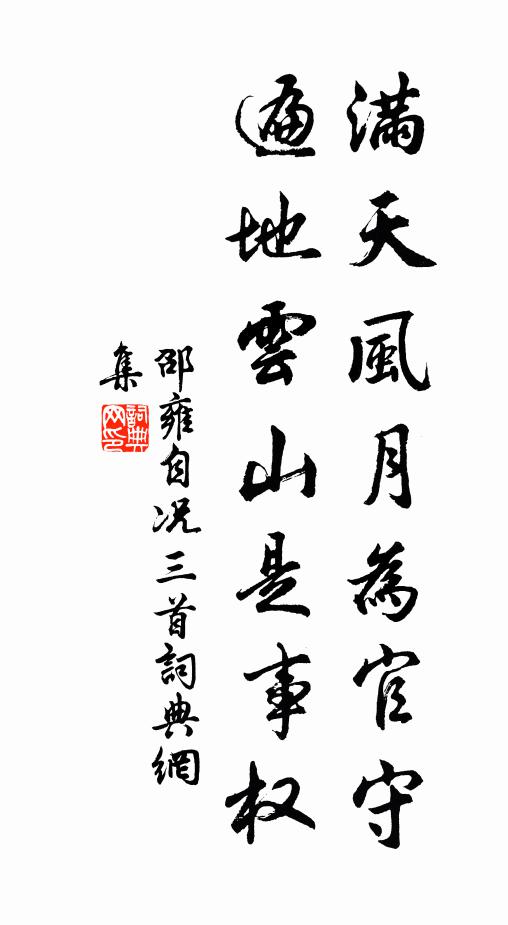 滿天風月為官守
遍地雲山是事权
邵雍自况三首詞典網
集
詞典网印